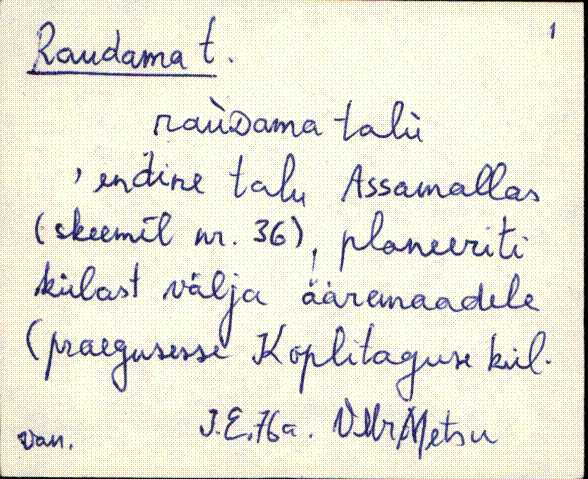 Raudama t. 1
raùDama talù
, endine talu Assamallas
(skeemil nr. 36), planeeriti
külast välja ääremaadele
(praegusesse Koplitaguse kül.
van. J.E. 76a. Metsu